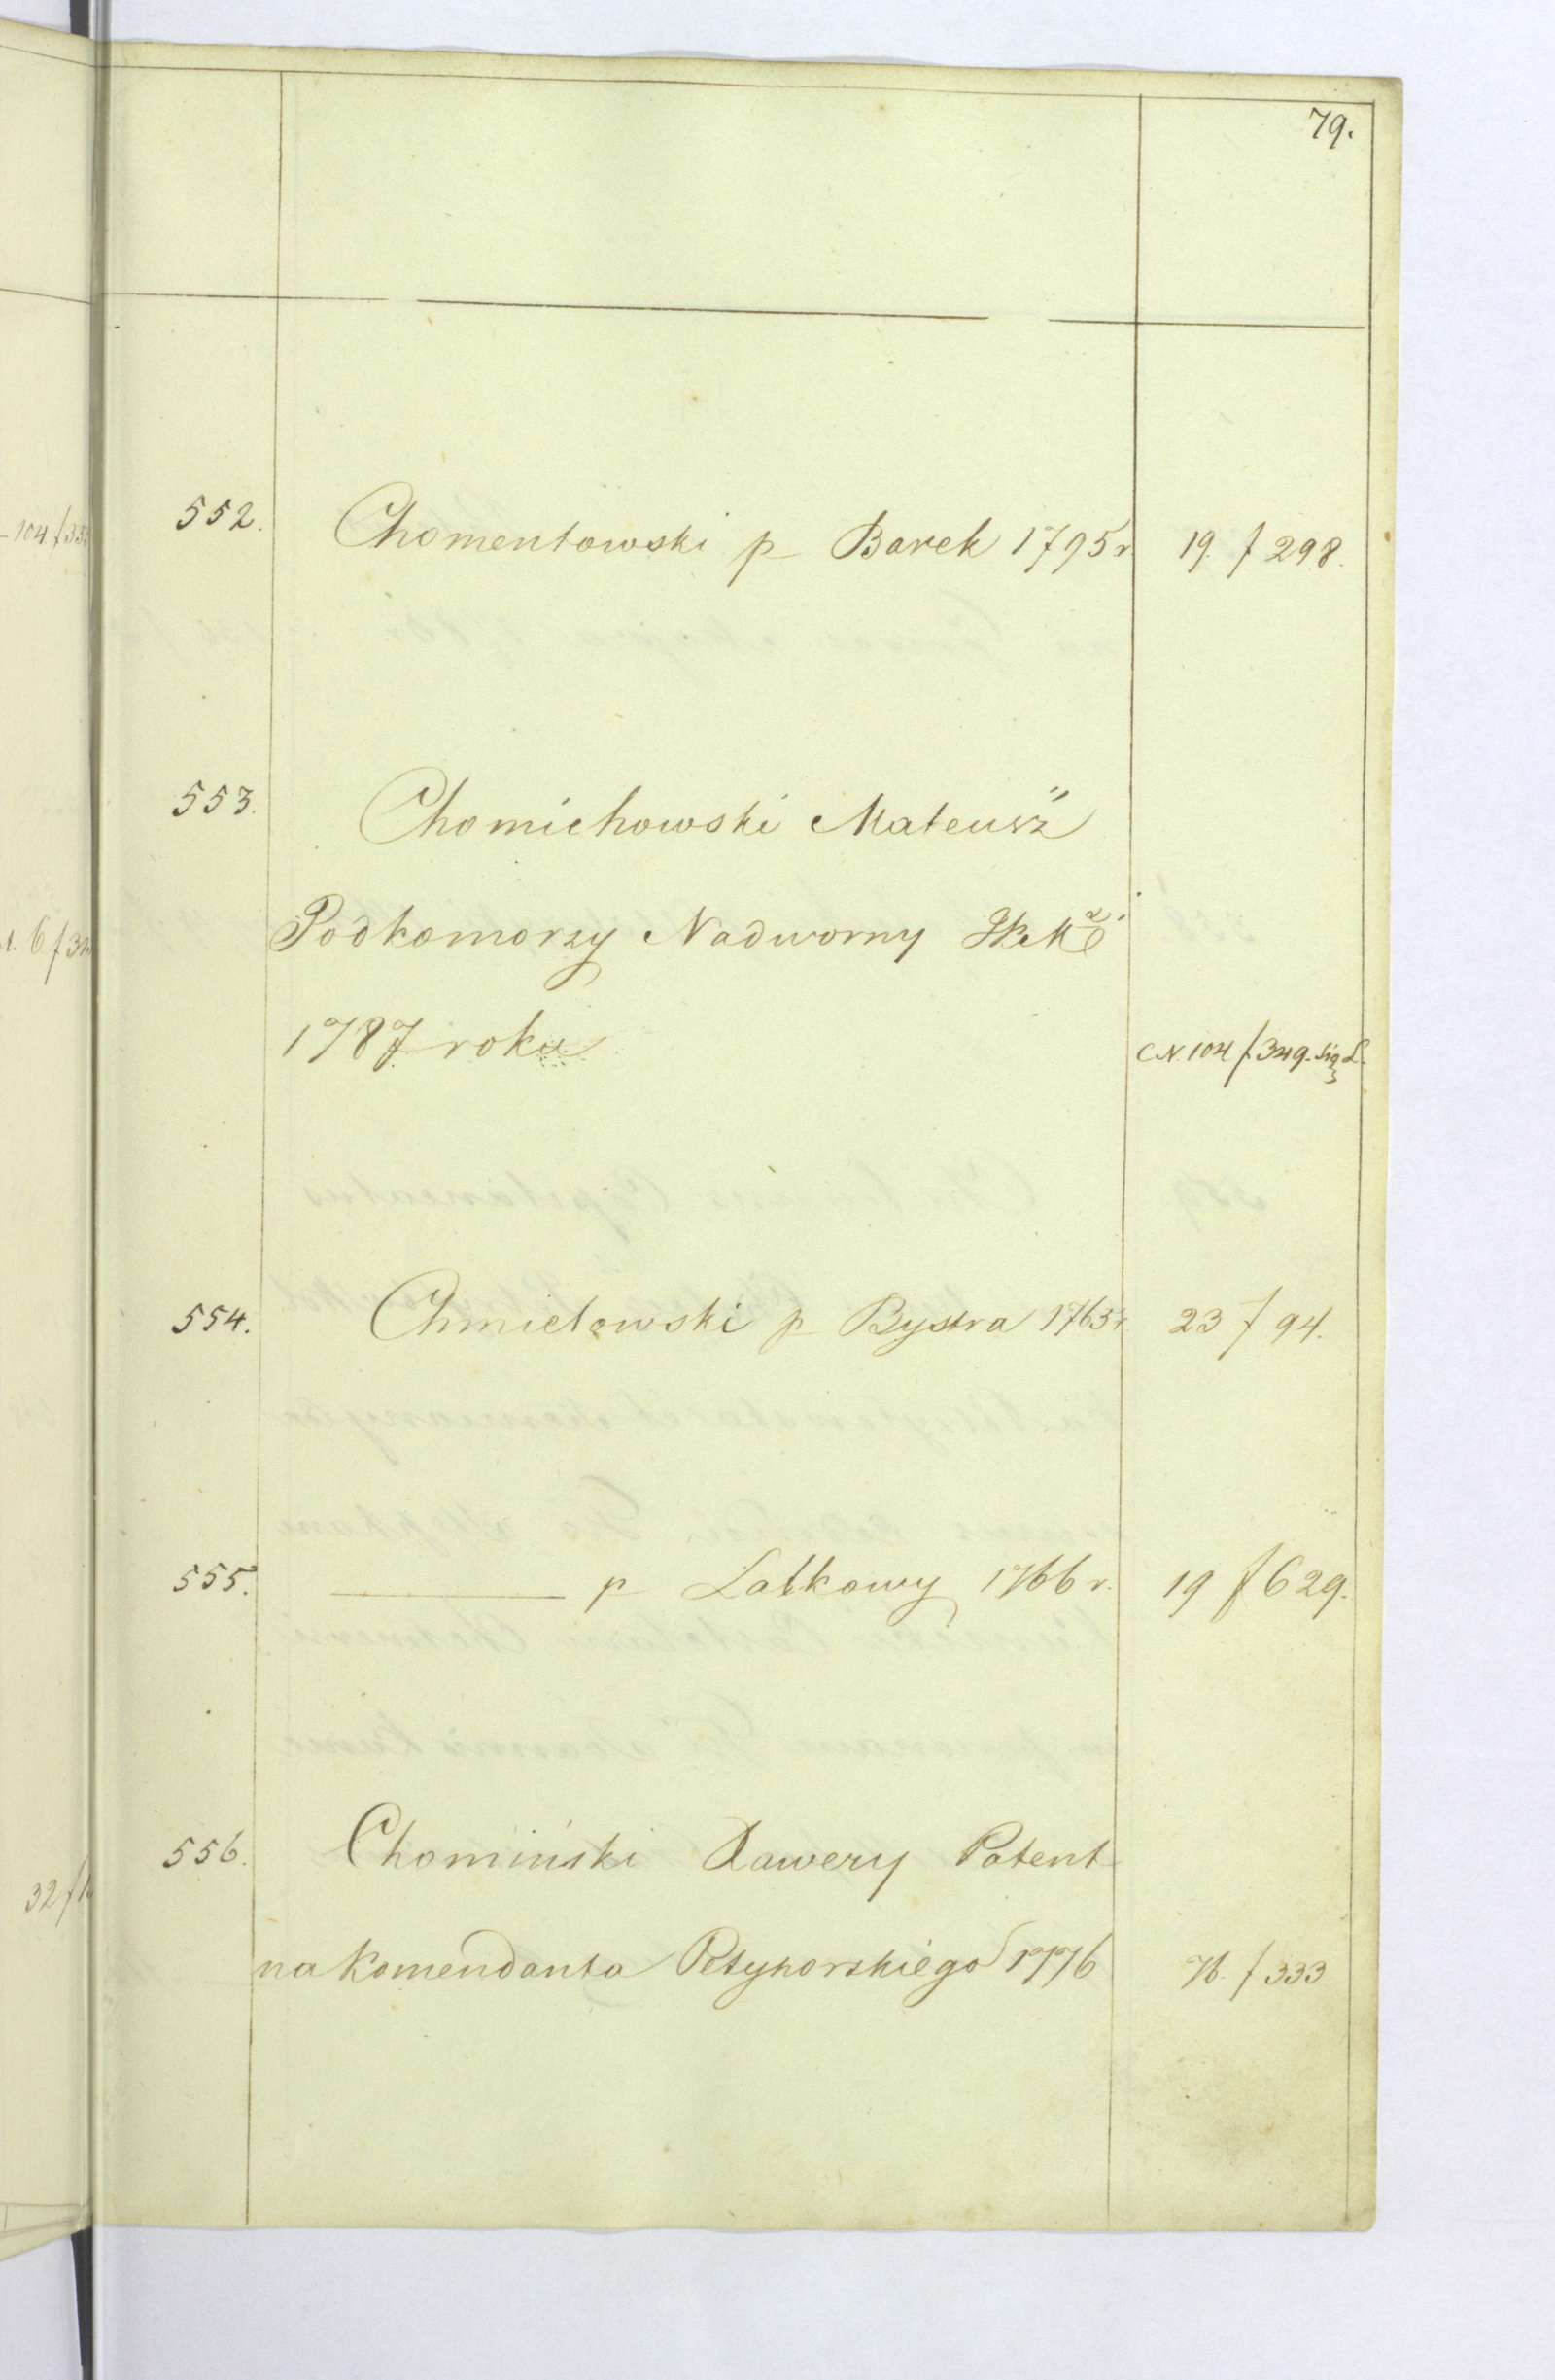 79.
552. Chomentowski p Barek 1795 r 19. f 298.
553. Chomichowski Mateusz
Podkomorzy Nadworny
1787. roku C.N. 104 f. 349. Sig
554. Chmielowski p Bystra 1763 r 23 f 94.
555. ——— p Łatkowy 1766 r. 19 f 629.
556. Chomiński Xawery Patent
na Komendanta Petyhorskiego 1776 76. f 333